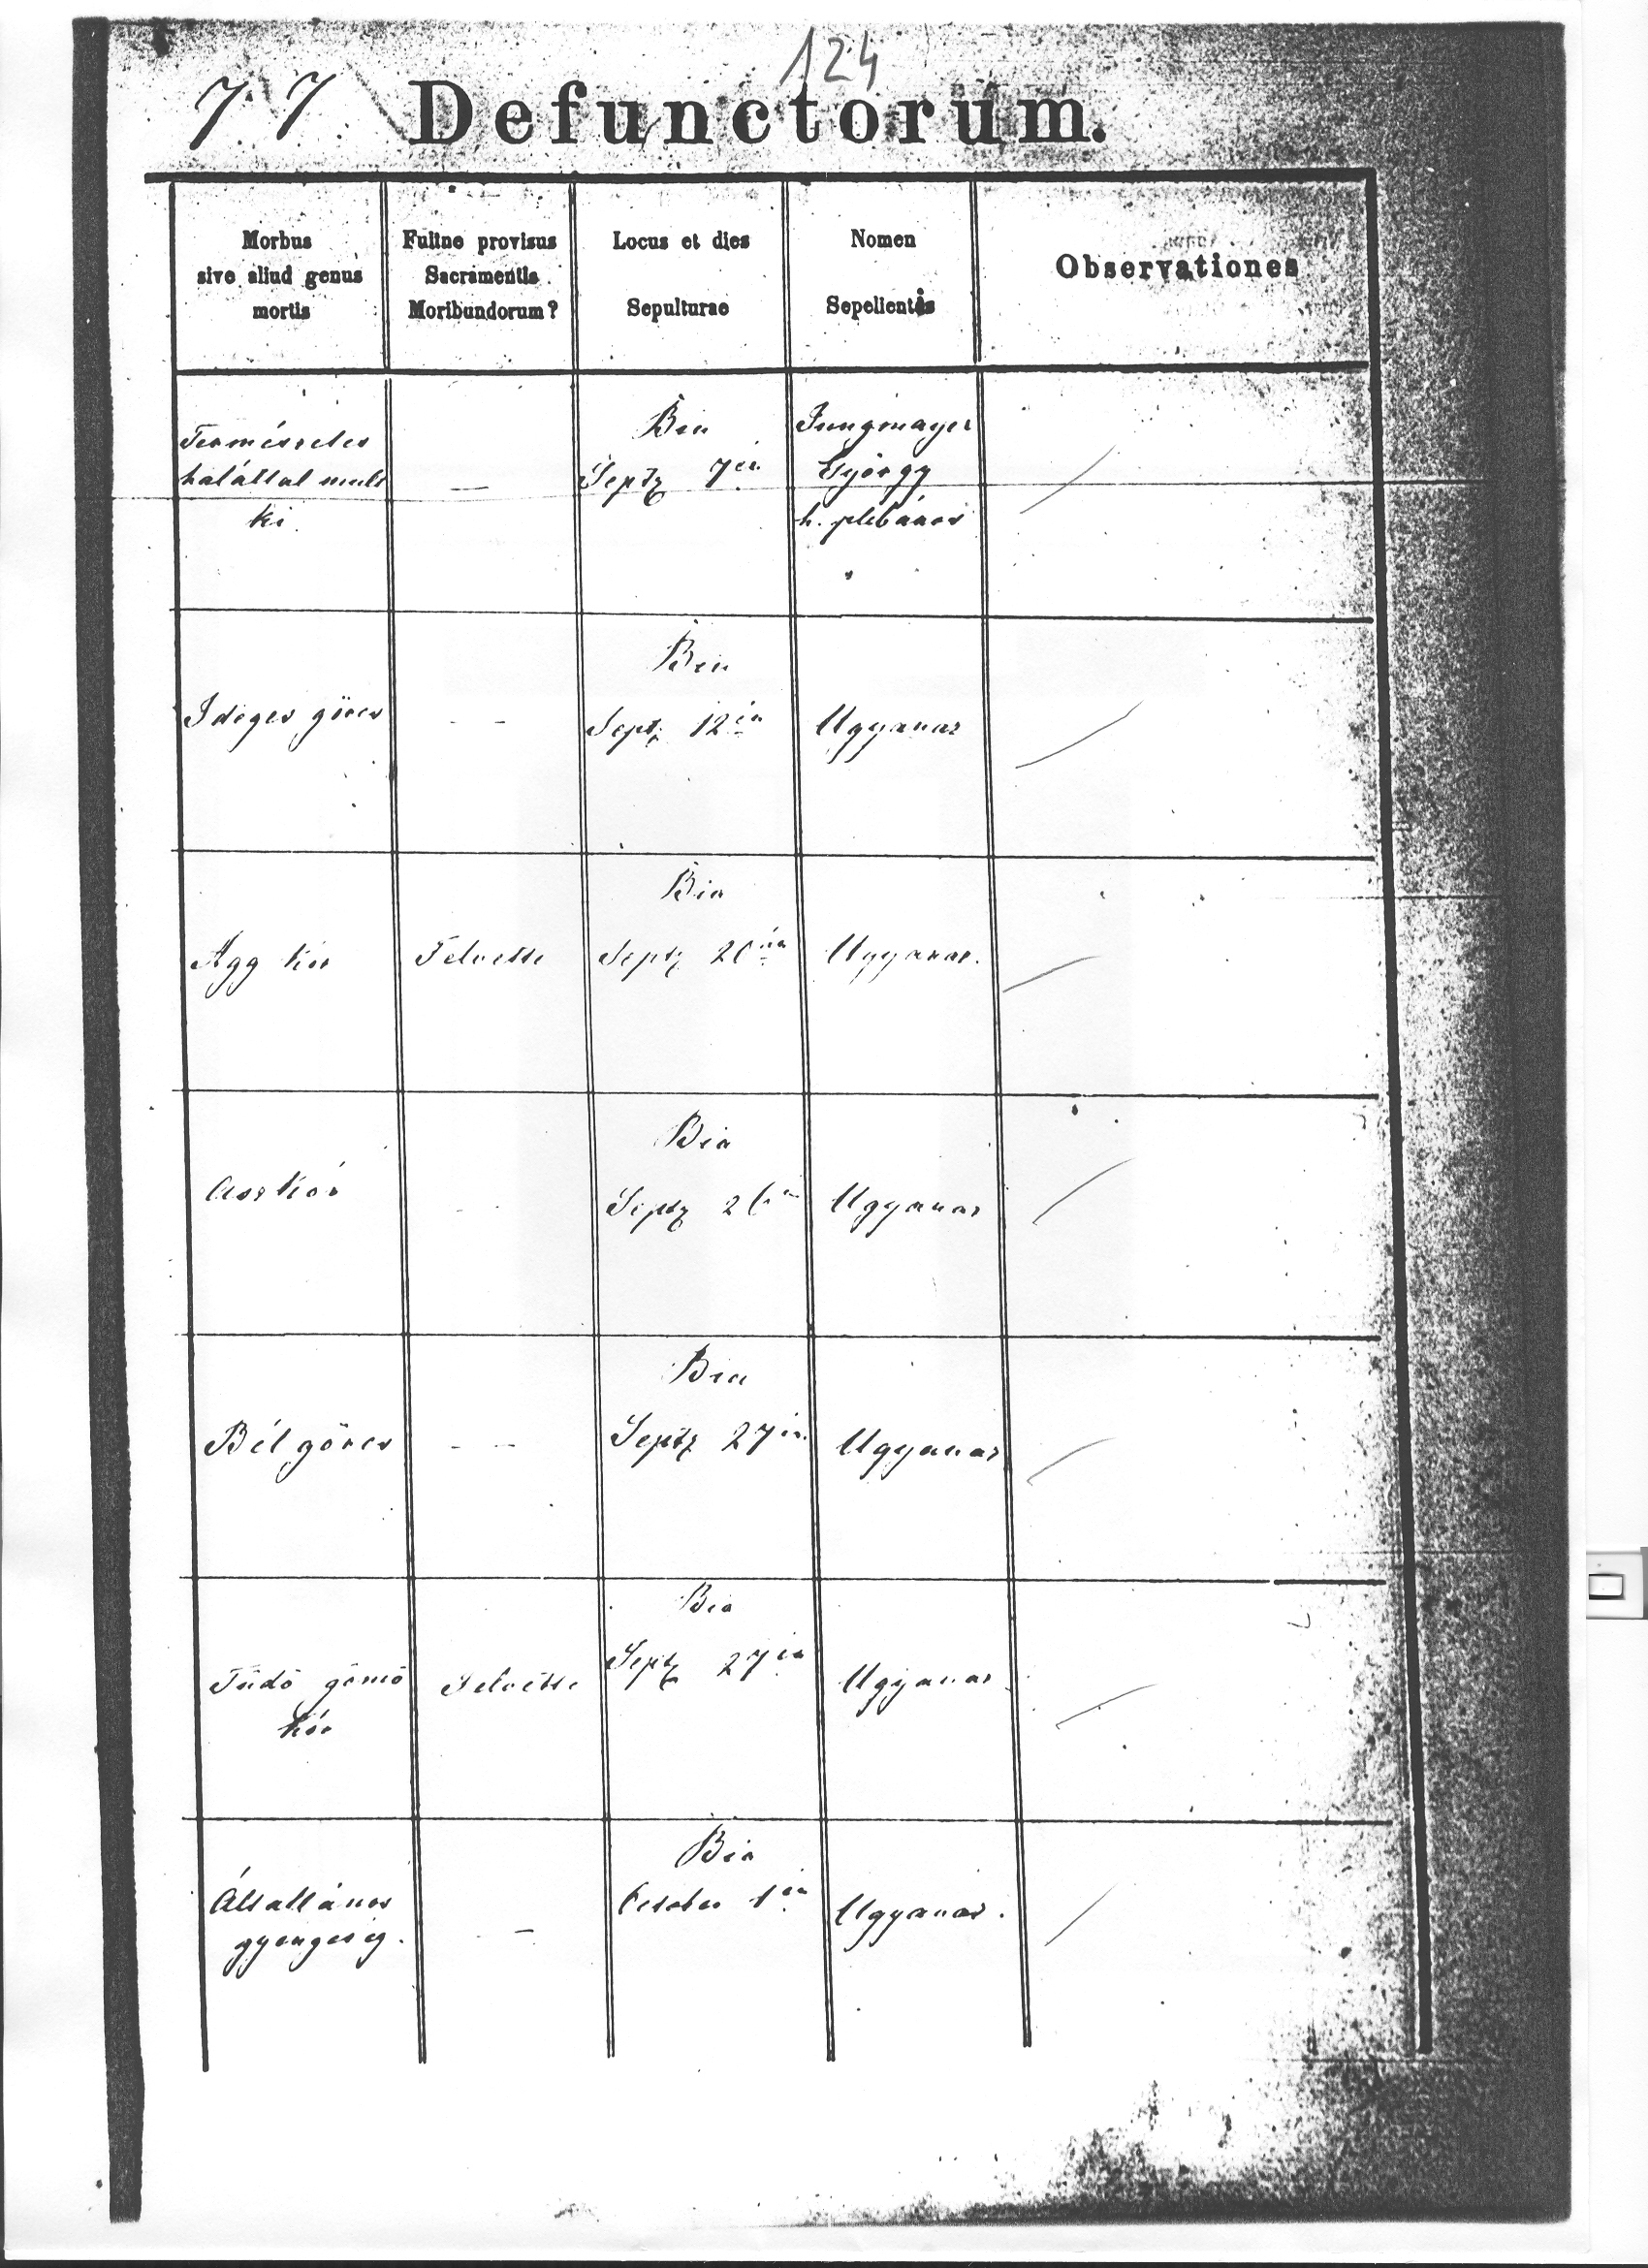 124
77 Defunctorum.
Morbus
sive aliud genus
mortis
Fuitne provisus
Sacramentis
Moribundorum?
Locus et dies
Sepulturae
Nomen
Sepelientis
Observationes
Természetes
halállal mult
ki
—
Bia
Septz 7én
Jungmayer
György
h. plébános
Ideges görcs
- -
Bia
Septz 12én
Ugyanaz
Agg kór
Felvette
Bia
Septz 20án
Ugyanaz.
Aszkór
- -
Bia
Septz 26
Ugyanaz
Bél görcs
- -
Bia
Septz 27én
Ugyanaz
Tüdő gümő
kór
Felvette
Bia
Septz 27én
Ugyanaz
Általlános
gyengeség.
- -
Bia
October 1én
Ugyanaz.